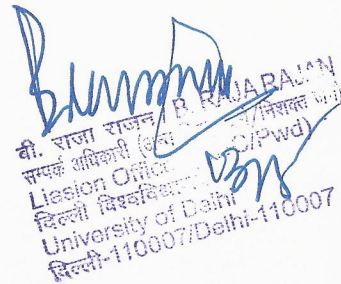 वी. राजा राजन / B. RAJARAJAN
सम्पर्क अधिकारी (अ
Liasion Offic C/Pwd)
दिल्ली विश्वविद्यालय
University of Delhi
दिल्ली-110007/Delhi-110007